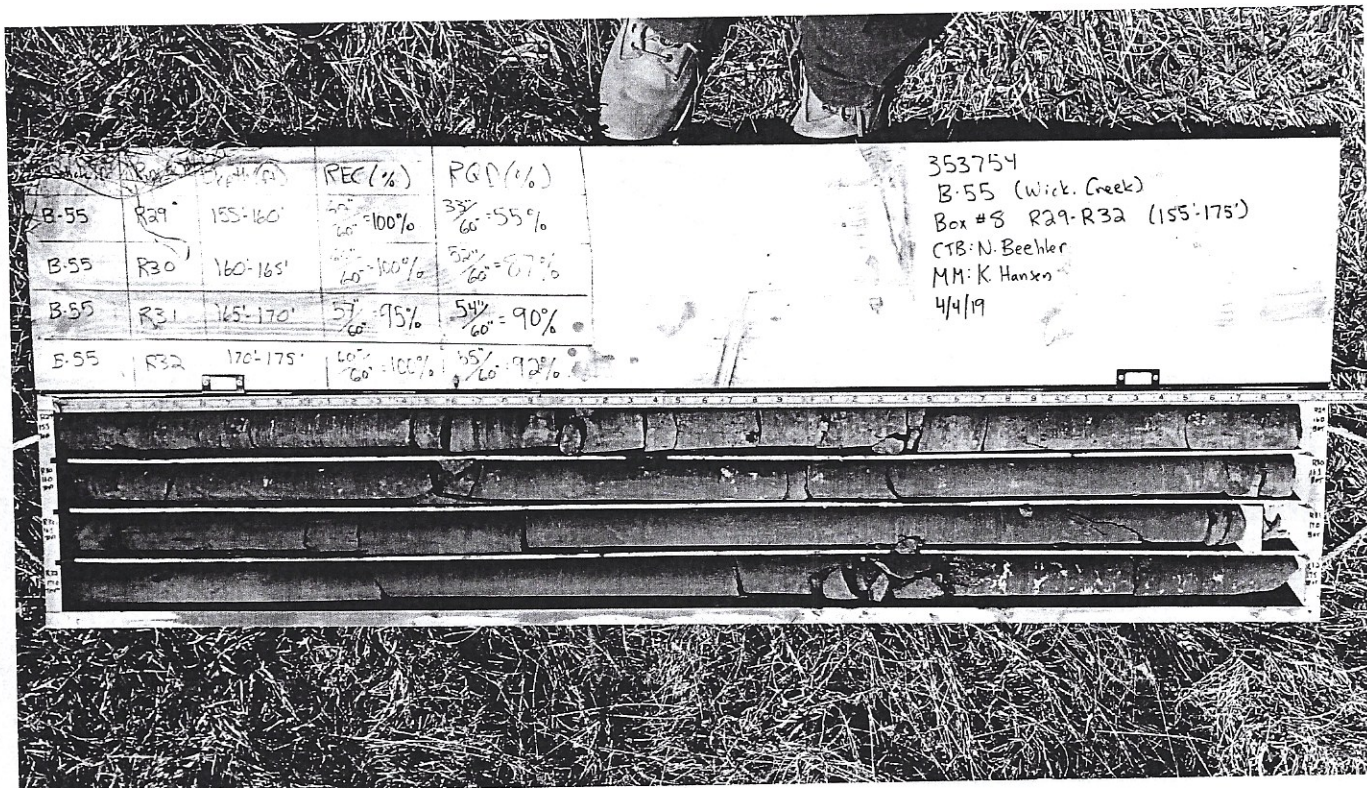 Depth (ft) REC (%) RQD (%)
B-55 R29 155'-160' 60" =100% 33"/60" =55%
B-55 R30 160'-165' 60" =100% 52"/60" =87%
B-55 R31 165'-170' 57"/60" =95% 54"/60" = 90%
B-55 R32 170'-175' 60"/60" =100% 55"/60" =92%
353754
B-55 (Wick. Creek)
Box #8 R29-R32 (155'-175')
CTB: N. Beehler
MM: K. Hansen
4/4/19